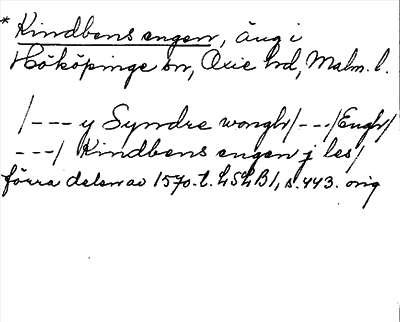 * Kindbens engen, äng i
Hököpinge sn, Oxie hd, Malm. l.
/--- y Syndre wongh/---/Engh/
---/ Kindbens engen j les/
förra delen av 1570-t. LSLB1, s. 443. orig